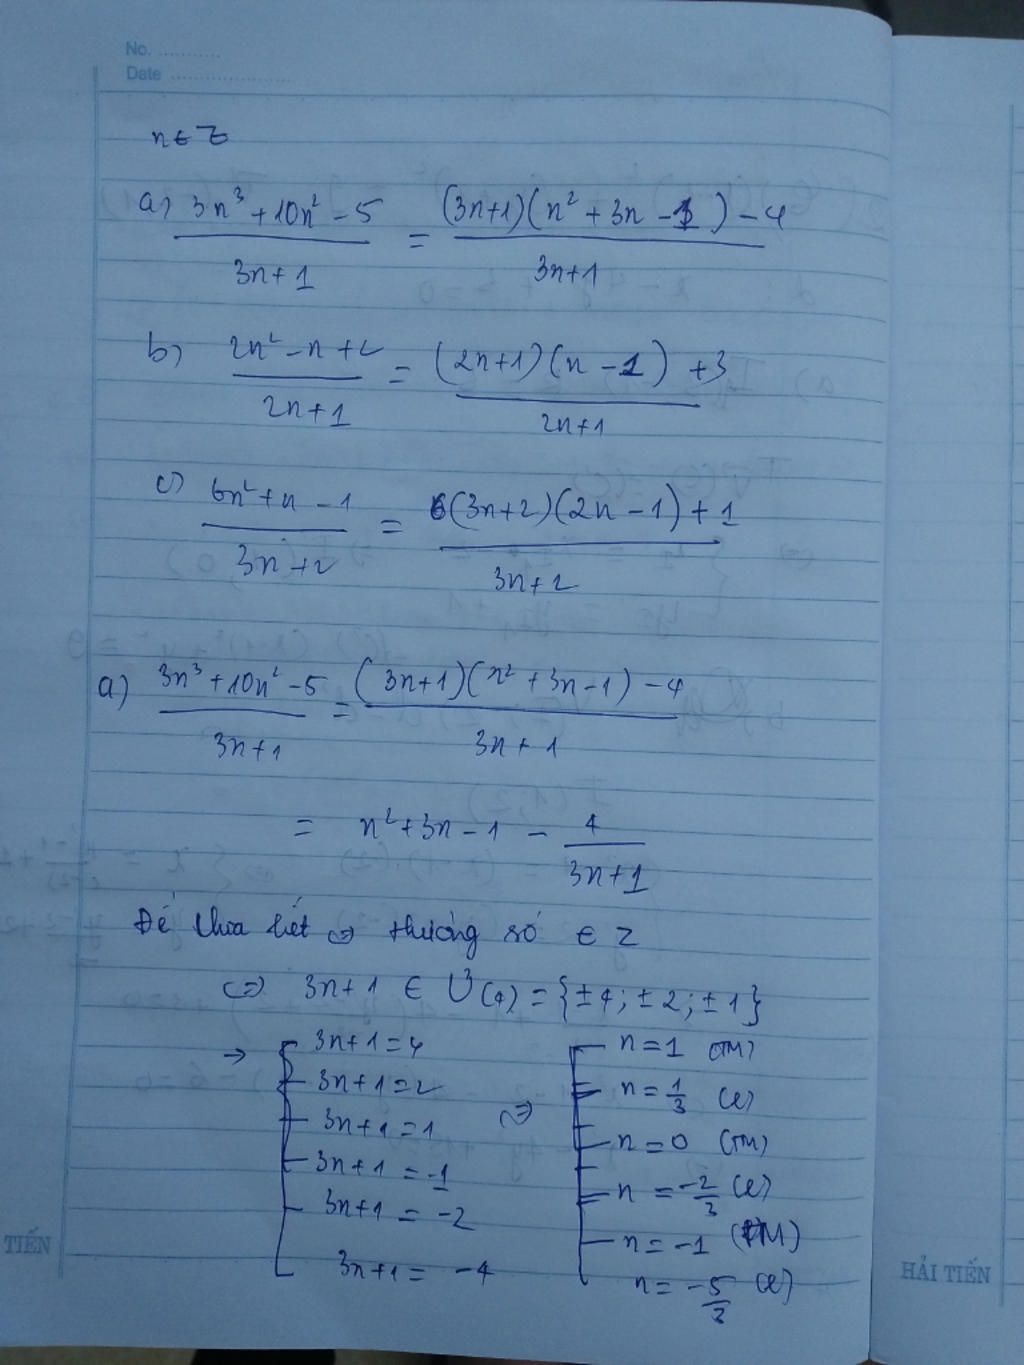 No. ..........
Date ....................
n ∈ Z
a) (3n³ + 10n² - 5)/(3n + 1) = ((3n+1)(n² + 3n - 1) - 4)/(3n+1)
b) (2n² - n + 2)/(2n + 1) = ((2n+1)(n - 1) + 3)/(2n+1)
c) (6n² + n - 1)/(3n + 2) = ((3n+2)(2n - 1) + 1)/(3n + 2)
a) (3n³ + 10n² - 5)/(3n + 1) = ((3n+1)(n² + 3n - 1) - 4)/(3n + 1)
= n² + 3n - 1 - 4/(3n + 1)
Để chia hết ⇔ thương số ∈ Z
⇔ 3n + 1 ∈ Ư(4) = {±4; ±2; ±1}
→ [ 3n + 1 = 4 ⇔ [ n = 1 (TM)
3n + 1 = 2 n = 1/3 (L)
3n + 1 = 1 n = 0 (TM)
3n + 1 = -1 n = -2/3 (L)
3n + 1 = -2 n = -1 (TM)
3n + 1 = -4 n = -5/3 (L)
TIẾN
HẢI TIẾN